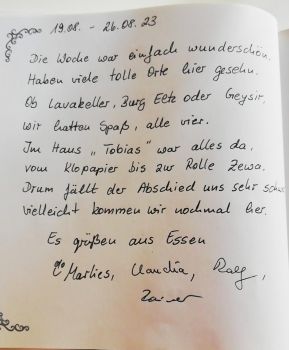 19.08. - 26.08.23
Die Woche war einfach wunderschön.
Haben viele tolle Orte hier gesehn.
Ob Lavakeller, Burg Eltz oder Geysir,
wir hatten Spaß, alle vier.
Im Haus „Tobias" war alles da,
vom Klopapier bis zur Rolle Zewa.
Drum fällt der Abschied uns sehr
vielleicht kommen wir nochmal her.
Es grüßen aus Essen
Marlies, Claudia, Ralf,